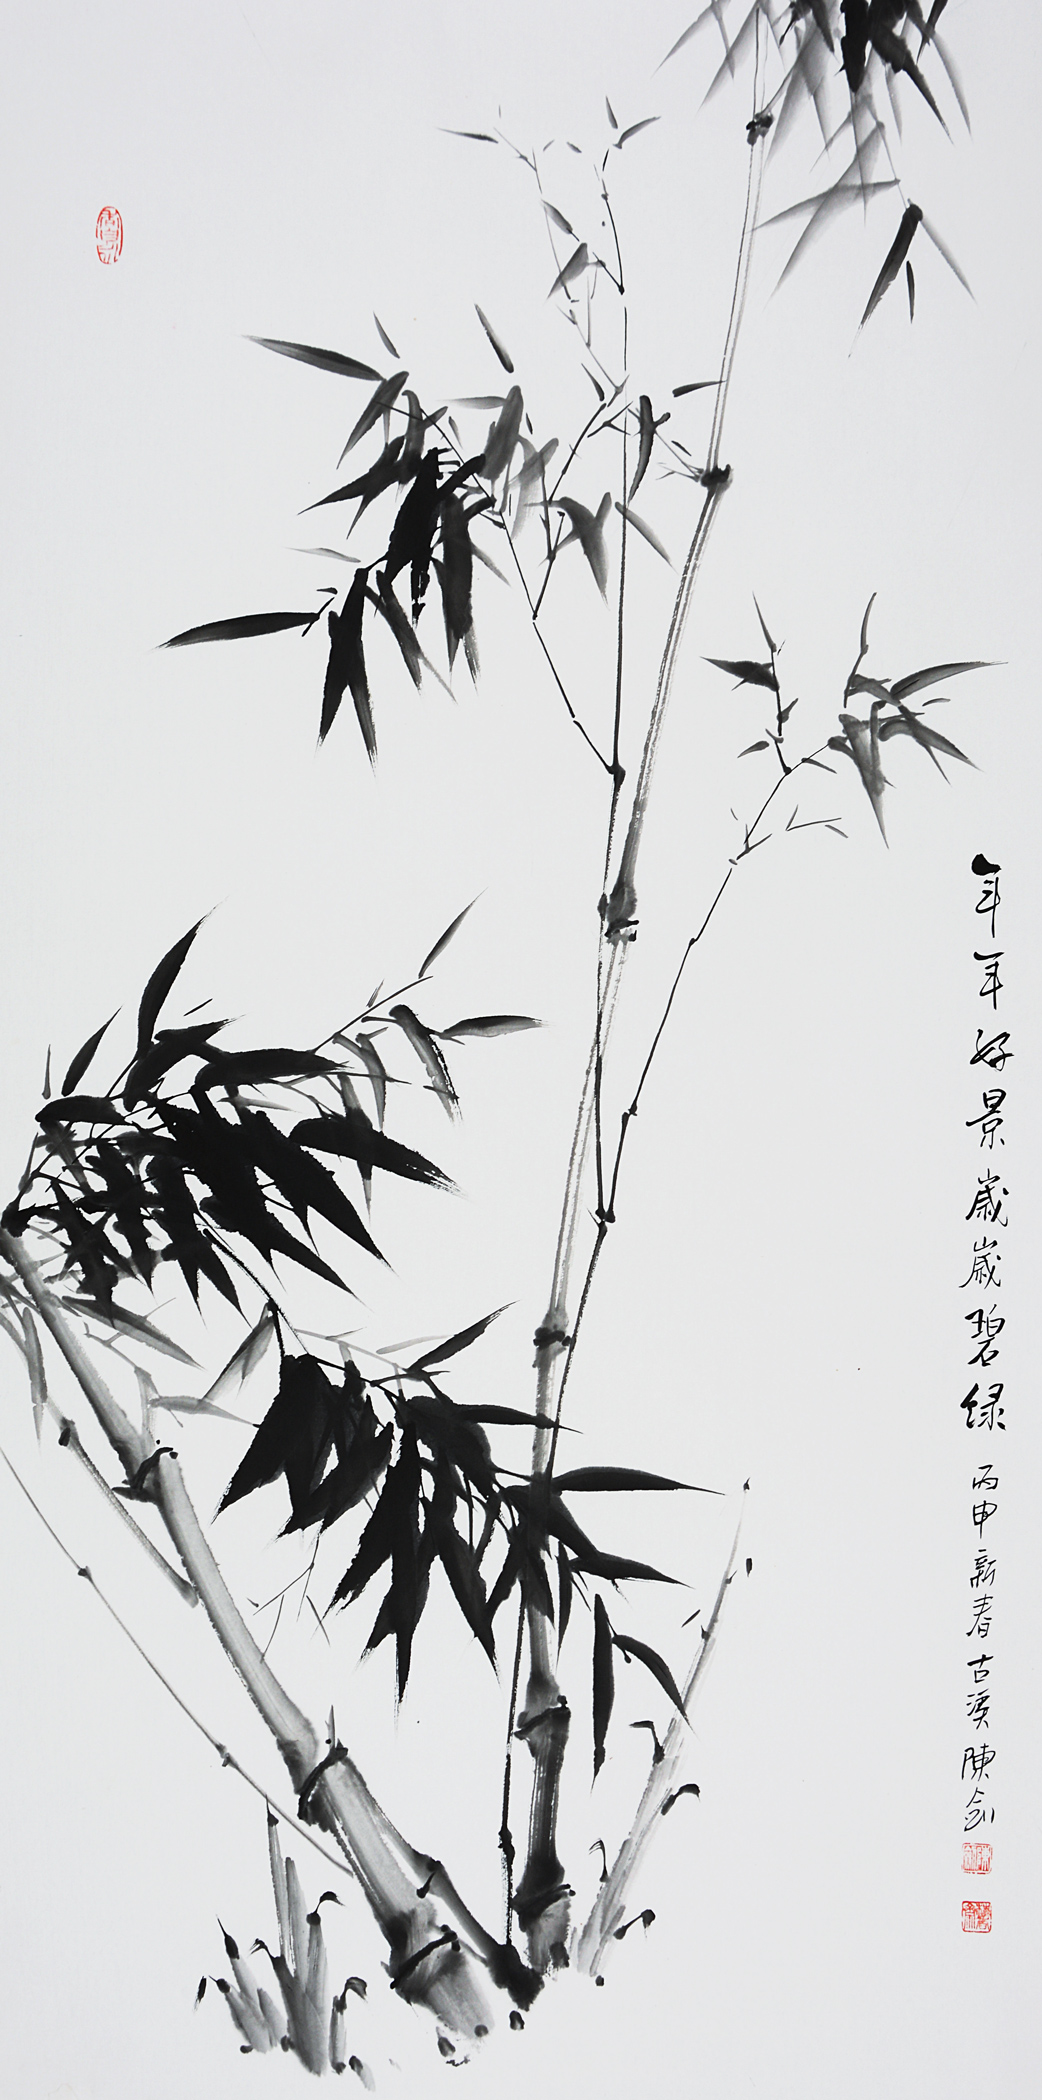 年年好景歲歲碧绿丙申新春古漢陳劍